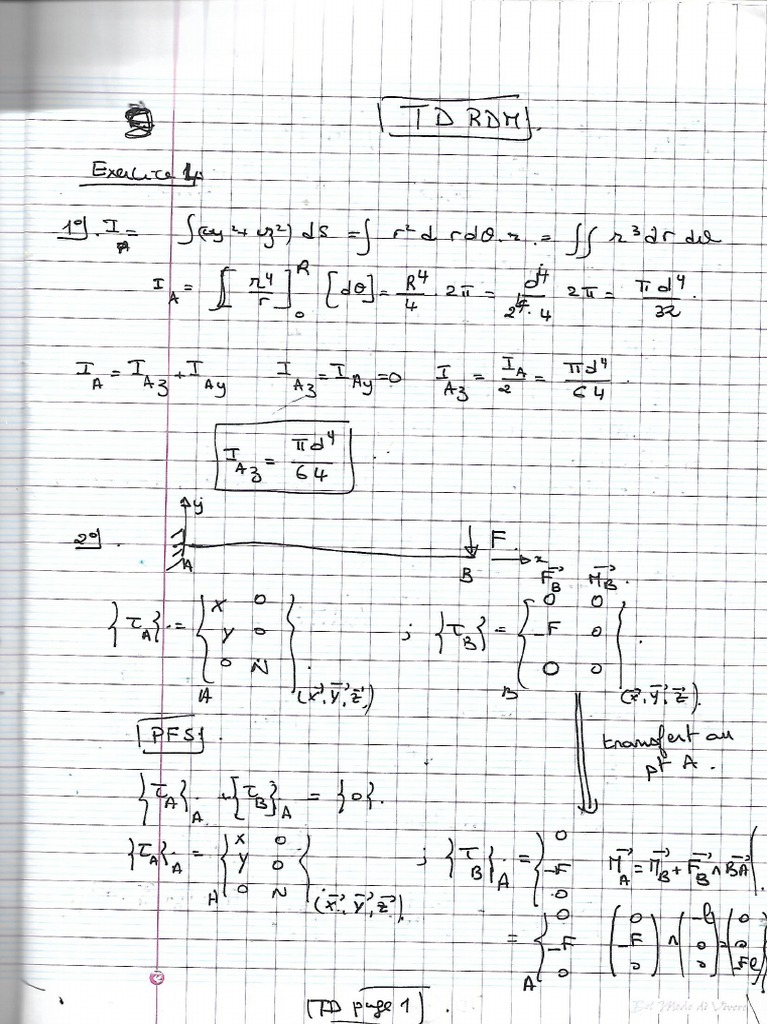 TD RDM.
Exercice 1.
1°). I_A = ∫(y²+z²) dS = ∫ r² d rdθ.r = ∬ r³ dr dθ
I_A = ∫[r⁴/r]₀^R [dθ] = R⁴/4 2π = d⁴/2⁴·4 2π = πd⁴/32.
I_A = I_A3 + I_Ay I_A3 = I_Ay = 0 I_A3 = I_A/2 = πd⁴/64.
I_A3 = πd⁴/64
y
2°). A B F. x
F_B→ M_B→.
{τ_A} = { X 0 ; Y 0 ; 0 N }_A (x→, y→, z→) ; {τ_B} = { 0 0 ; -F 0 ; 0 0 }_B (x→, y→, z→).
transfert au
pt A.
PFS
{τ_A}_A + {τ_B}_A = {0}.
{τ_A}_A = { X 0 ; Y 0 ; 0 N }_A (x→, y→, z→) ; {τ_B}_A = { 0 ; -F ; 0 M_A→ = M_B→ + F_B→ ∧ BA→
= { 0 ; -F ; 0 }_A (0 ; -F ; 0) ∧ (-l ; 0 ; 0) = (0 ; 0 ; -Fl)
(TD page 1).